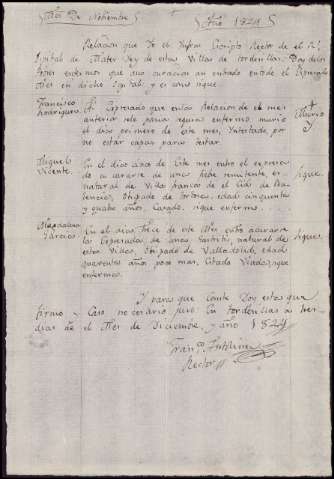 Mes De Nobiembre Año 1824
Relacion que Yo el Ynfras Cripto Rector de el Rl
Ospital de Mater Dey de estas Villas de tordesillas Doy de los
Pobres enfermos que asu curacion an entrado en todo el Espresado
Mes en dicho Ospital, y es como sigue
Francisco Rodriguez A. Espresado que en la Relacion de el mes
anterior se le puso seguia enfermo, murio Murio
el dia primero de este mes, Yntestado, por
no estar capaz para testar.
Miguel Vicente. En el dia de Este mes entro el expresado
a curarse de una fiebre remitente, es
natural de Villa franca de el Cid de Sigue.
Obispado de tortosa, edad cincuenta
y quatro años, Casado, sigue enfermo.
Magdalena Garcia En el dia trece de este Mes entro acurarse
la Espresada de una Gastritis, natural de
esta Villa, Obispado de Valladolid, edad Sigue
quarenta años poco mas, Estado Viuda, sigue
enferma.
Y para que Conste Doy esta que
firmo y Caso necesario juro En tordesillas a tres
dias de el Mes de Diciembre y año 1824
Franco.
Rector